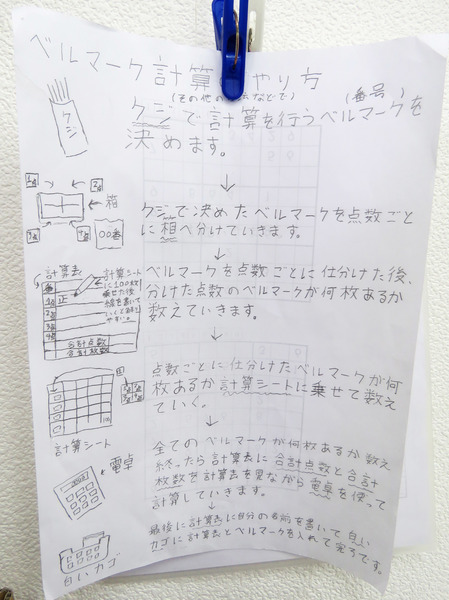 ベルマーク計算のやり方
(その他の方法などで)
(番号)
クジで計算を行うベルマークを
決めます。
クジ
↓
クジで決めたベルマークを点数ごと
に箱へ分けていきます。
箱
00番
↓
ベルマークを点数ごとに仕分けた後、
分けた点数のベルマークが何枚あるか
数えていきます。
計算表
計算シート
に100枚
乗せた後
線を書いて
いくと解り
やすい。
正
合計点数
合計枚数
↓
点数ごとに仕分けたベルマークが何
枚あるか計算シートに乗せて数え
ていく。
計算シート
↓
全てのベルマークが何枚あるか数え
終ったら計算表に合計点数と合計
枚数を計算表を見ながら電卓を使って
計算していきます。
電卓
↓
最後に計算表に自分の名前を書いて白い
カゴに計算表とベルマークを入れて完了です。
白いカゴ